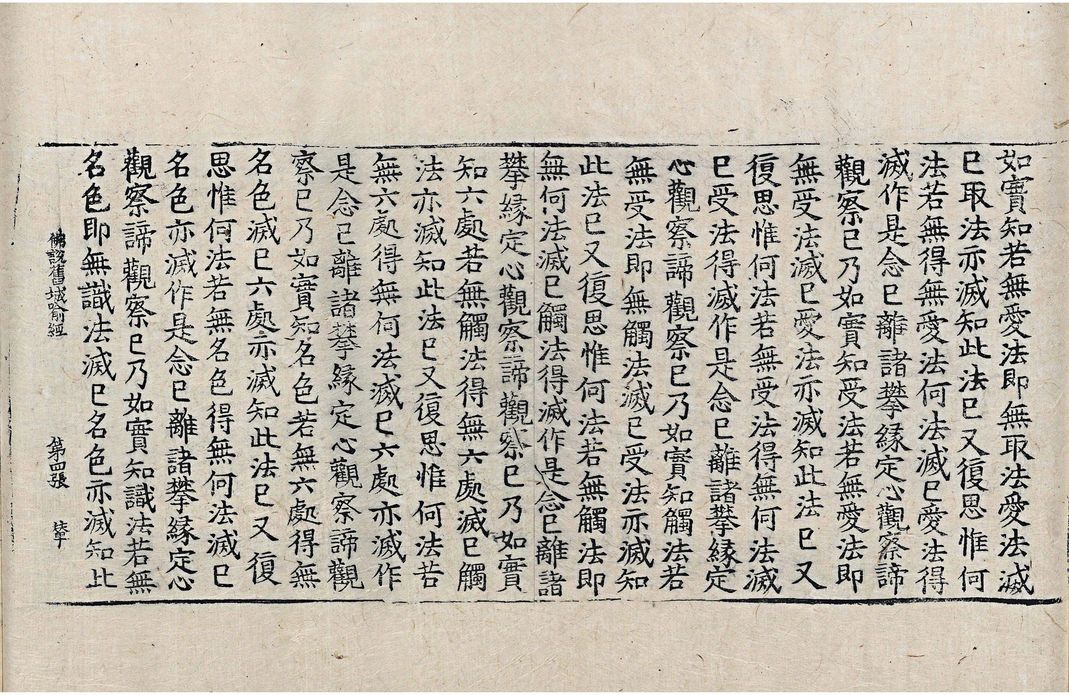 如實知若無愛法即無取法愛法滅
已取法亦滅知此法已又復思惟何
法若無得無愛法何法滅已愛法得
滅作是念已離諸攀緣定心觀察諦
觀察已乃如實知受法若無愛法即
無受法滅已愛法亦滅知此法已又
復思惟何法若無受法得無何法滅
已受法得滅作是念已離諸攀緣定
心觀察諦觀察已乃如實知觸法若
無受法即無觸法滅已受法亦滅知
此法已又復思惟何法若無觸法即
無何法滅已觸法得滅作是念已離諸
攀緣定心觀察諦觀察已乃如實
知六處若無觸法得無六處滅已觸
法亦滅知此法已又復思惟何法若
無六處得無何法滅已六處亦滅作
是念已離諸攀緣定心觀察諦觀
察已乃如實知名色若無六處得無
名色滅已六處亦滅知此法已又復
思惟何法若無名色得無何法滅已
名色亦滅作是念已離諸攀緣定心
觀察諦觀察已乃如實知識法若無
名色即無識法滅已名色亦滅知此
佛說舊城喻經 第四張